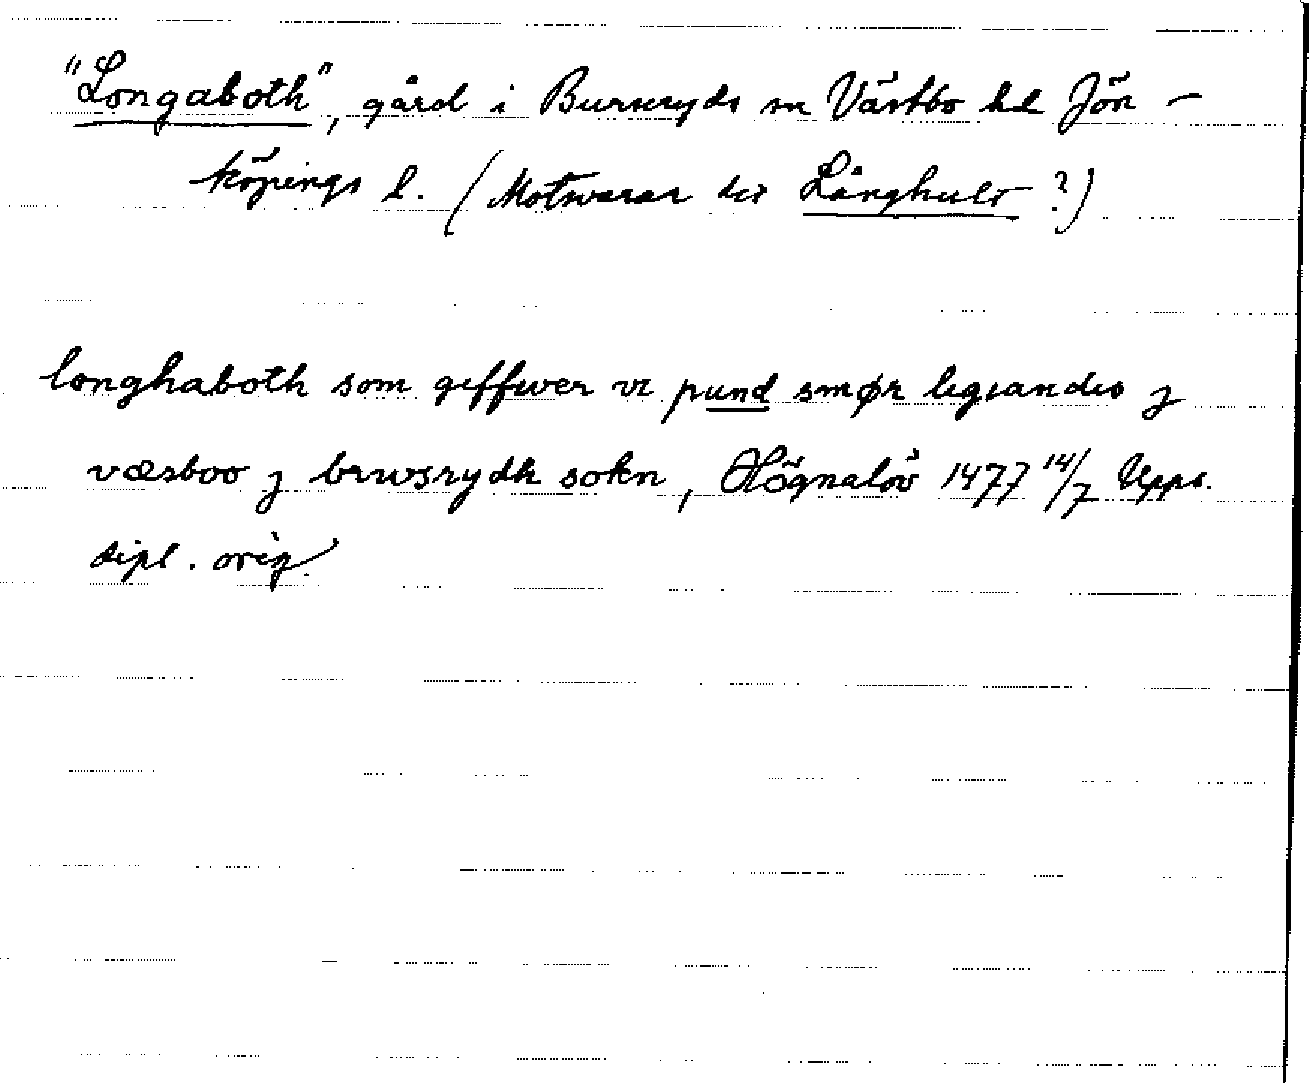 "Longaboth", gård i Burseryds sn Västbo hd Jön-
köpings l. (Motsvarar det Långhult?)
longhaboth som geffwer vi pund smør legiandis j
væsboo j brwsrydh sokn, Högnalöv 1477 14/7 Upps.
dipl. orig.